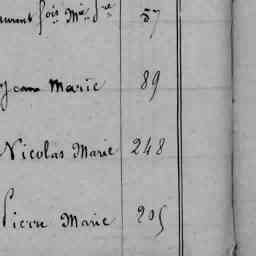 aurent fois Mie Jre 57
Jean Marie 89
Nicolas Marie 248
Pierre Marie 205